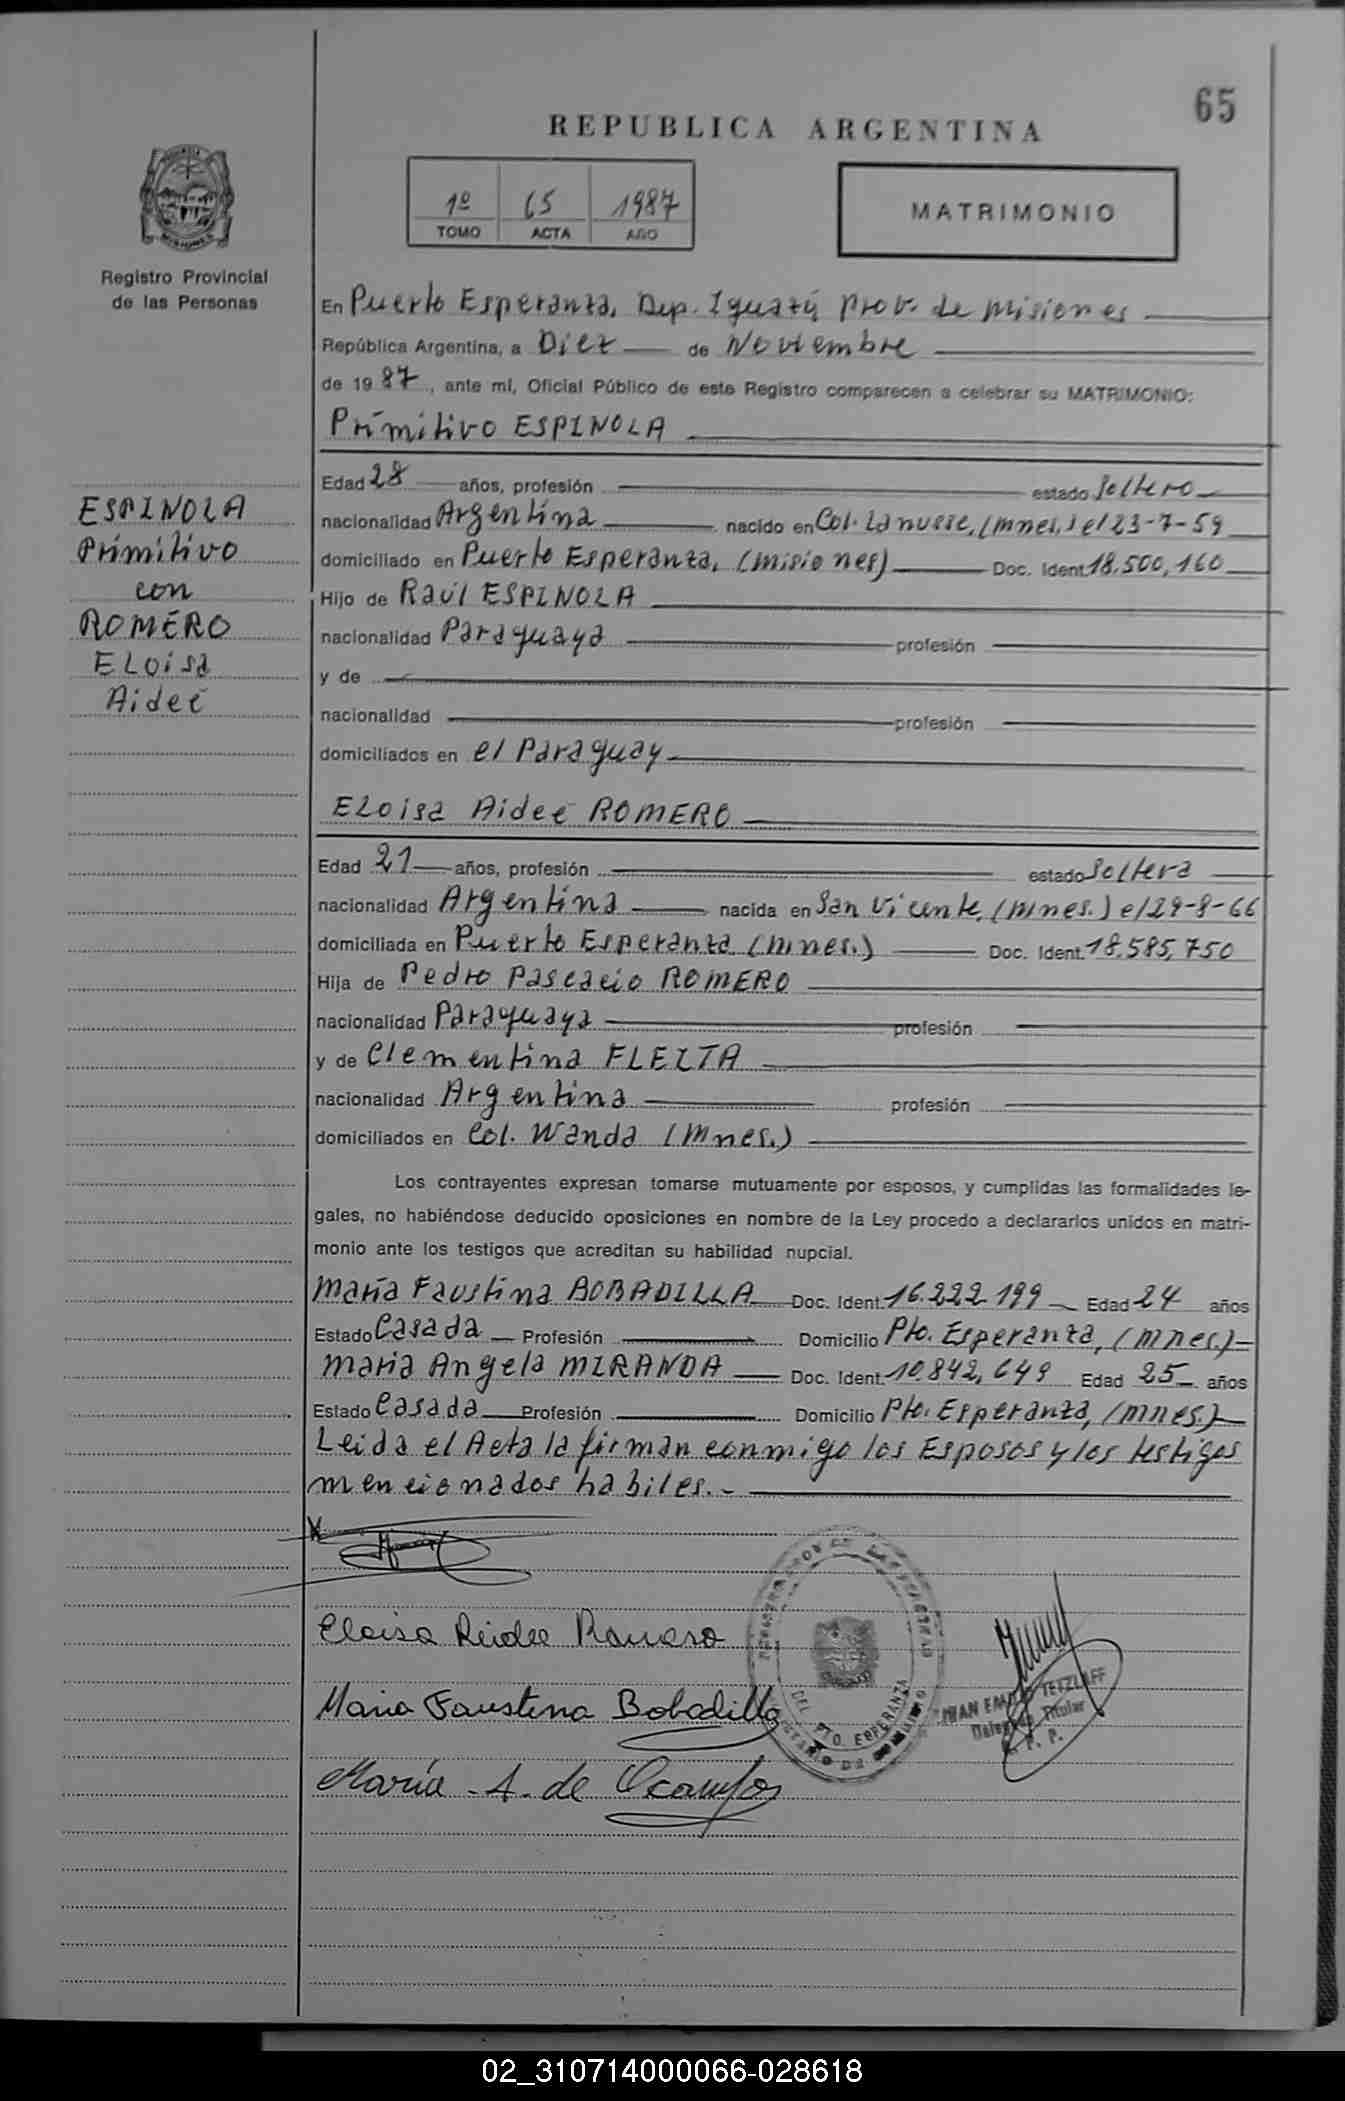 65
REPUBLICA ARGENTINA
1º 65 1987
TOMO ACTA AÑO
MATRIMONIO
Registro Provincial
de las Personas
En Puerto Esperanza, Dep. Iguazú Prov. de Misiones
República Argentina, a Diez de Noviembre
de 1987, ante mí, Oficial Público de este Registro comparecen a celebrar su MATRIMONIO:
Primitivo ESPINOLA
Edad 28 años, profesión estado Soltero
nacionalidad Argentina nacido en Col. Lanusse, (Mnes.) el 23-7-59
domiciliado en Puerto Esperanza, (Misiones) Doc. Ident. 18.500,160
Hijo de Raúl ESPINOLA
nacionalidad Paraguaya profesión
y de
nacionalidad profesión
domiciliados en el Paraguay
ESPINOLA
Primitivo
con
ROMERO
ELoisa
Aideé
ELoisa Aideé ROMERO
Edad 21 años, profesión estado Soltera
nacionalidad Argentina nacida en San Vicente, (Mnes.) el 29-8-66
domiciliada en Puerto Esperanza (Mnes.) Doc. Ident. 18.585,750
Hija de Pedro Pascacio ROMERO
nacionalidad Paraguaya profesión
y de Clementina FLEITA
nacionalidad Argentina profesión
domiciliados en Col. Wanda (Mnes.)
Los contrayentes expresan tomarse mutuamente por esposos, y cumplidas las formalidades le-
gales, no habiéndose deducido oposiciones en nombre de la Ley procedo a declararlos unidos en matri-
monio ante los testigos que acreditan su habilidad nupcial.
María Faustina BOBADILLA Doc. Ident. 16.222.199 Edad 24 años
Estado Casada Profesión Domicilio Pto. Esperanza, (Mnes.)
María Angela MIRANDA Doc. Ident. 10.842,649 Edad 25 años
Estado Casada Profesión Domicilio Pto. Esperanza, (Mnes.)
Leida el Acta la firman conmigo los Esposos y los testigos
mencionados habiles.-
Eloisa Aidee Romero
Maria Faustina Bobadilla
María A. de Ocampos
DEL PTO. ESPERANZA
TETZLAFF
Titular
02_310714000066-028618